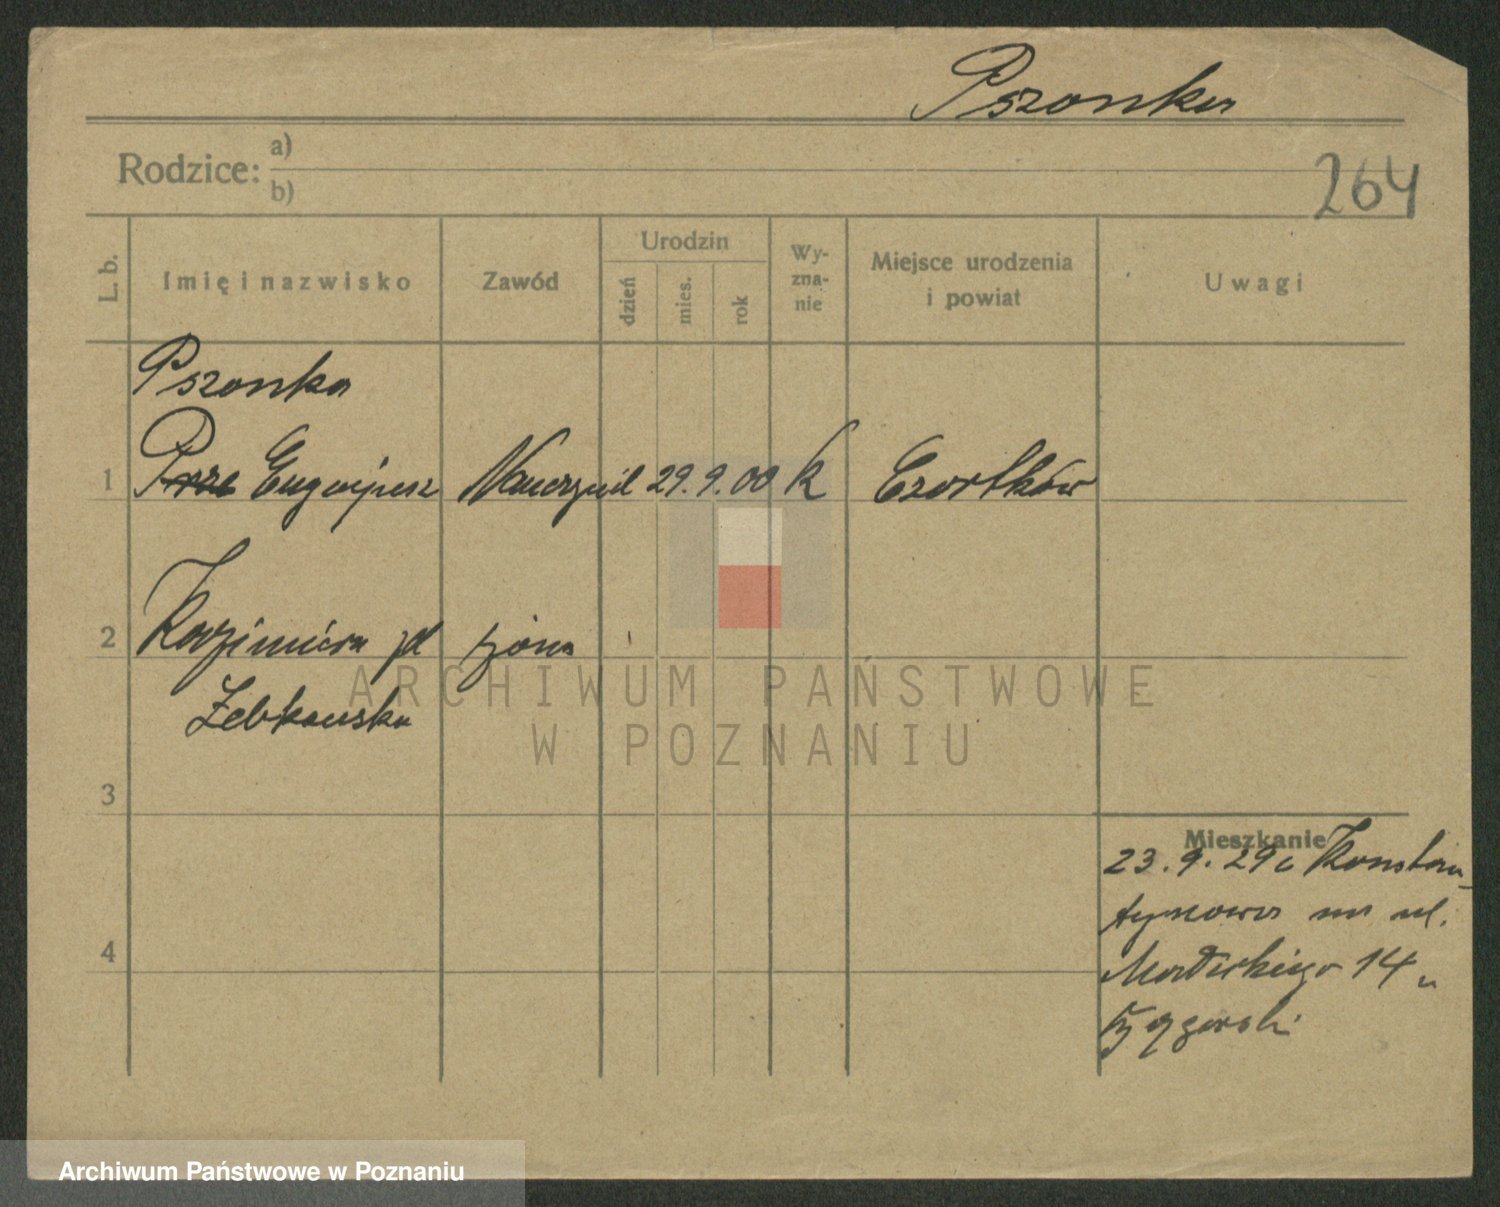 Pszonka
Rodzice: a)
b)
264
L. b.
Imię i nazwisko
Zawód
Urodzin
dzień
mies.
rok
Wy-
zna-
nie
Miejsce urodzenia
i powiat
Uwagi
Pszonka
1 Eugenjusz Nauczyciel 29. 9. 00 k Czortków
2 Kazimiera żona
3
4
Mieszkanie
23. 9. 29 Konstan-
tynowa na ul.
14
ARCHIWUM PAŃSTWOWE
W POZNANIU
Archiwum Państwowe w Poznaniu